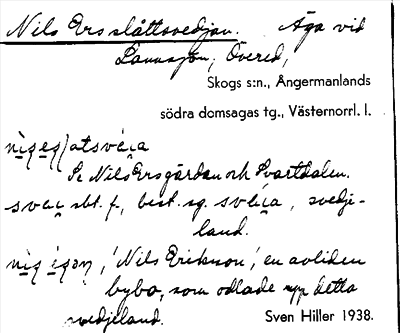 Nils Ers slåttsvedjan. Äga vid
Lannsjön, Övered,
Skogs s:n., Ångermanlands
södra domsagas tg., Västernorrl. l.
Se Nils Ersgårdan och Svartdalen.
svaɩ sbt. f., best. sg. svéɩa, svedje-
land.
'Nils Erikson', en avliden
bybo, som odlade upp detta
svedjeland. Sven Hiller 1938.